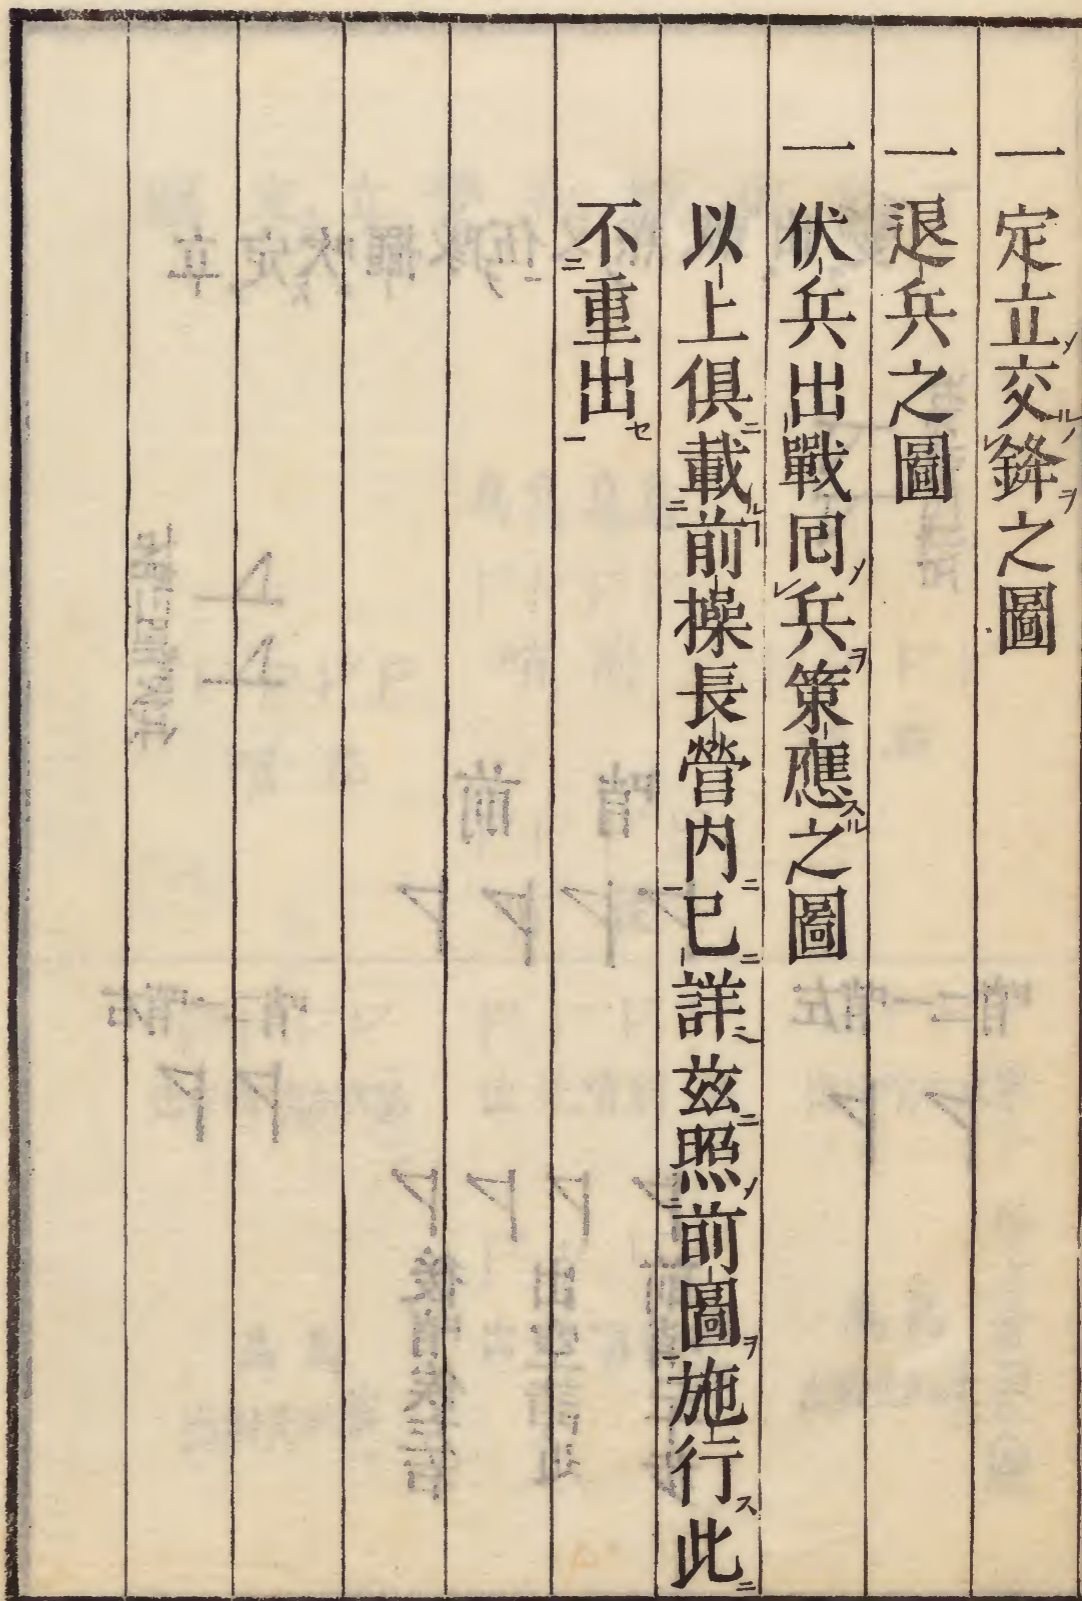 一定立交鋒之圖
一退兵之圖
一伏兵出戰囘兵策應之圖
以上俱載前操長營內已詳茲照前圖施行此
不重出